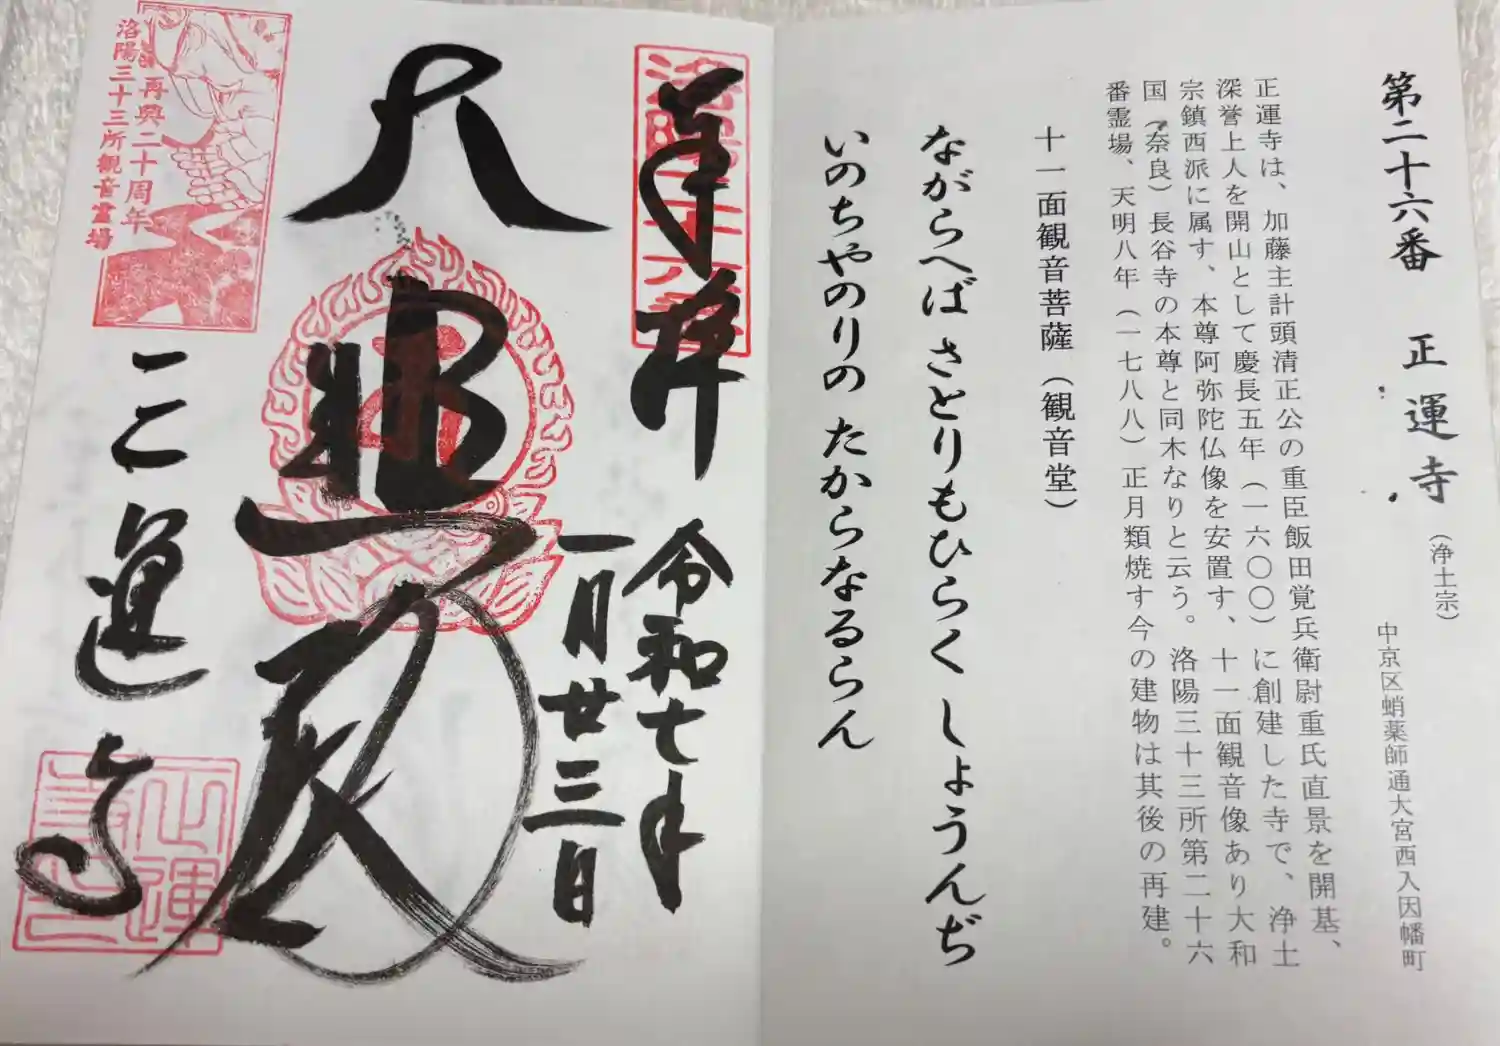 第二十六番　正運寺（浄土宗）
中京区蛸薬師通大宮西入因幡町
正運寺は、加藤主計頭清正公の重臣飯田覚兵衛尉重氏直景を開基、
深誉上人を開山として慶長五年（一六〇〇）に創建した寺で、浄土
宗鎮西派に属す、本尊阿弥陀仏像を安置す、十一面観音像あり大和
国（奈良）長谷寺の本尊と同木なりと云う。洛陽三十三所第二十六
番霊場、天明八年（一七八八）正月類焼す今の建物は其後の再建。
十一面観音菩薩（観音堂）
ながらへば さとりもひらく しょうんぢ
いのちやのりの たからなるらん
奉拝
令和七年
一月廿三日
大悲殿
正運寺
再興二十周年
洛陽三十三所観音霊場
正運寺之